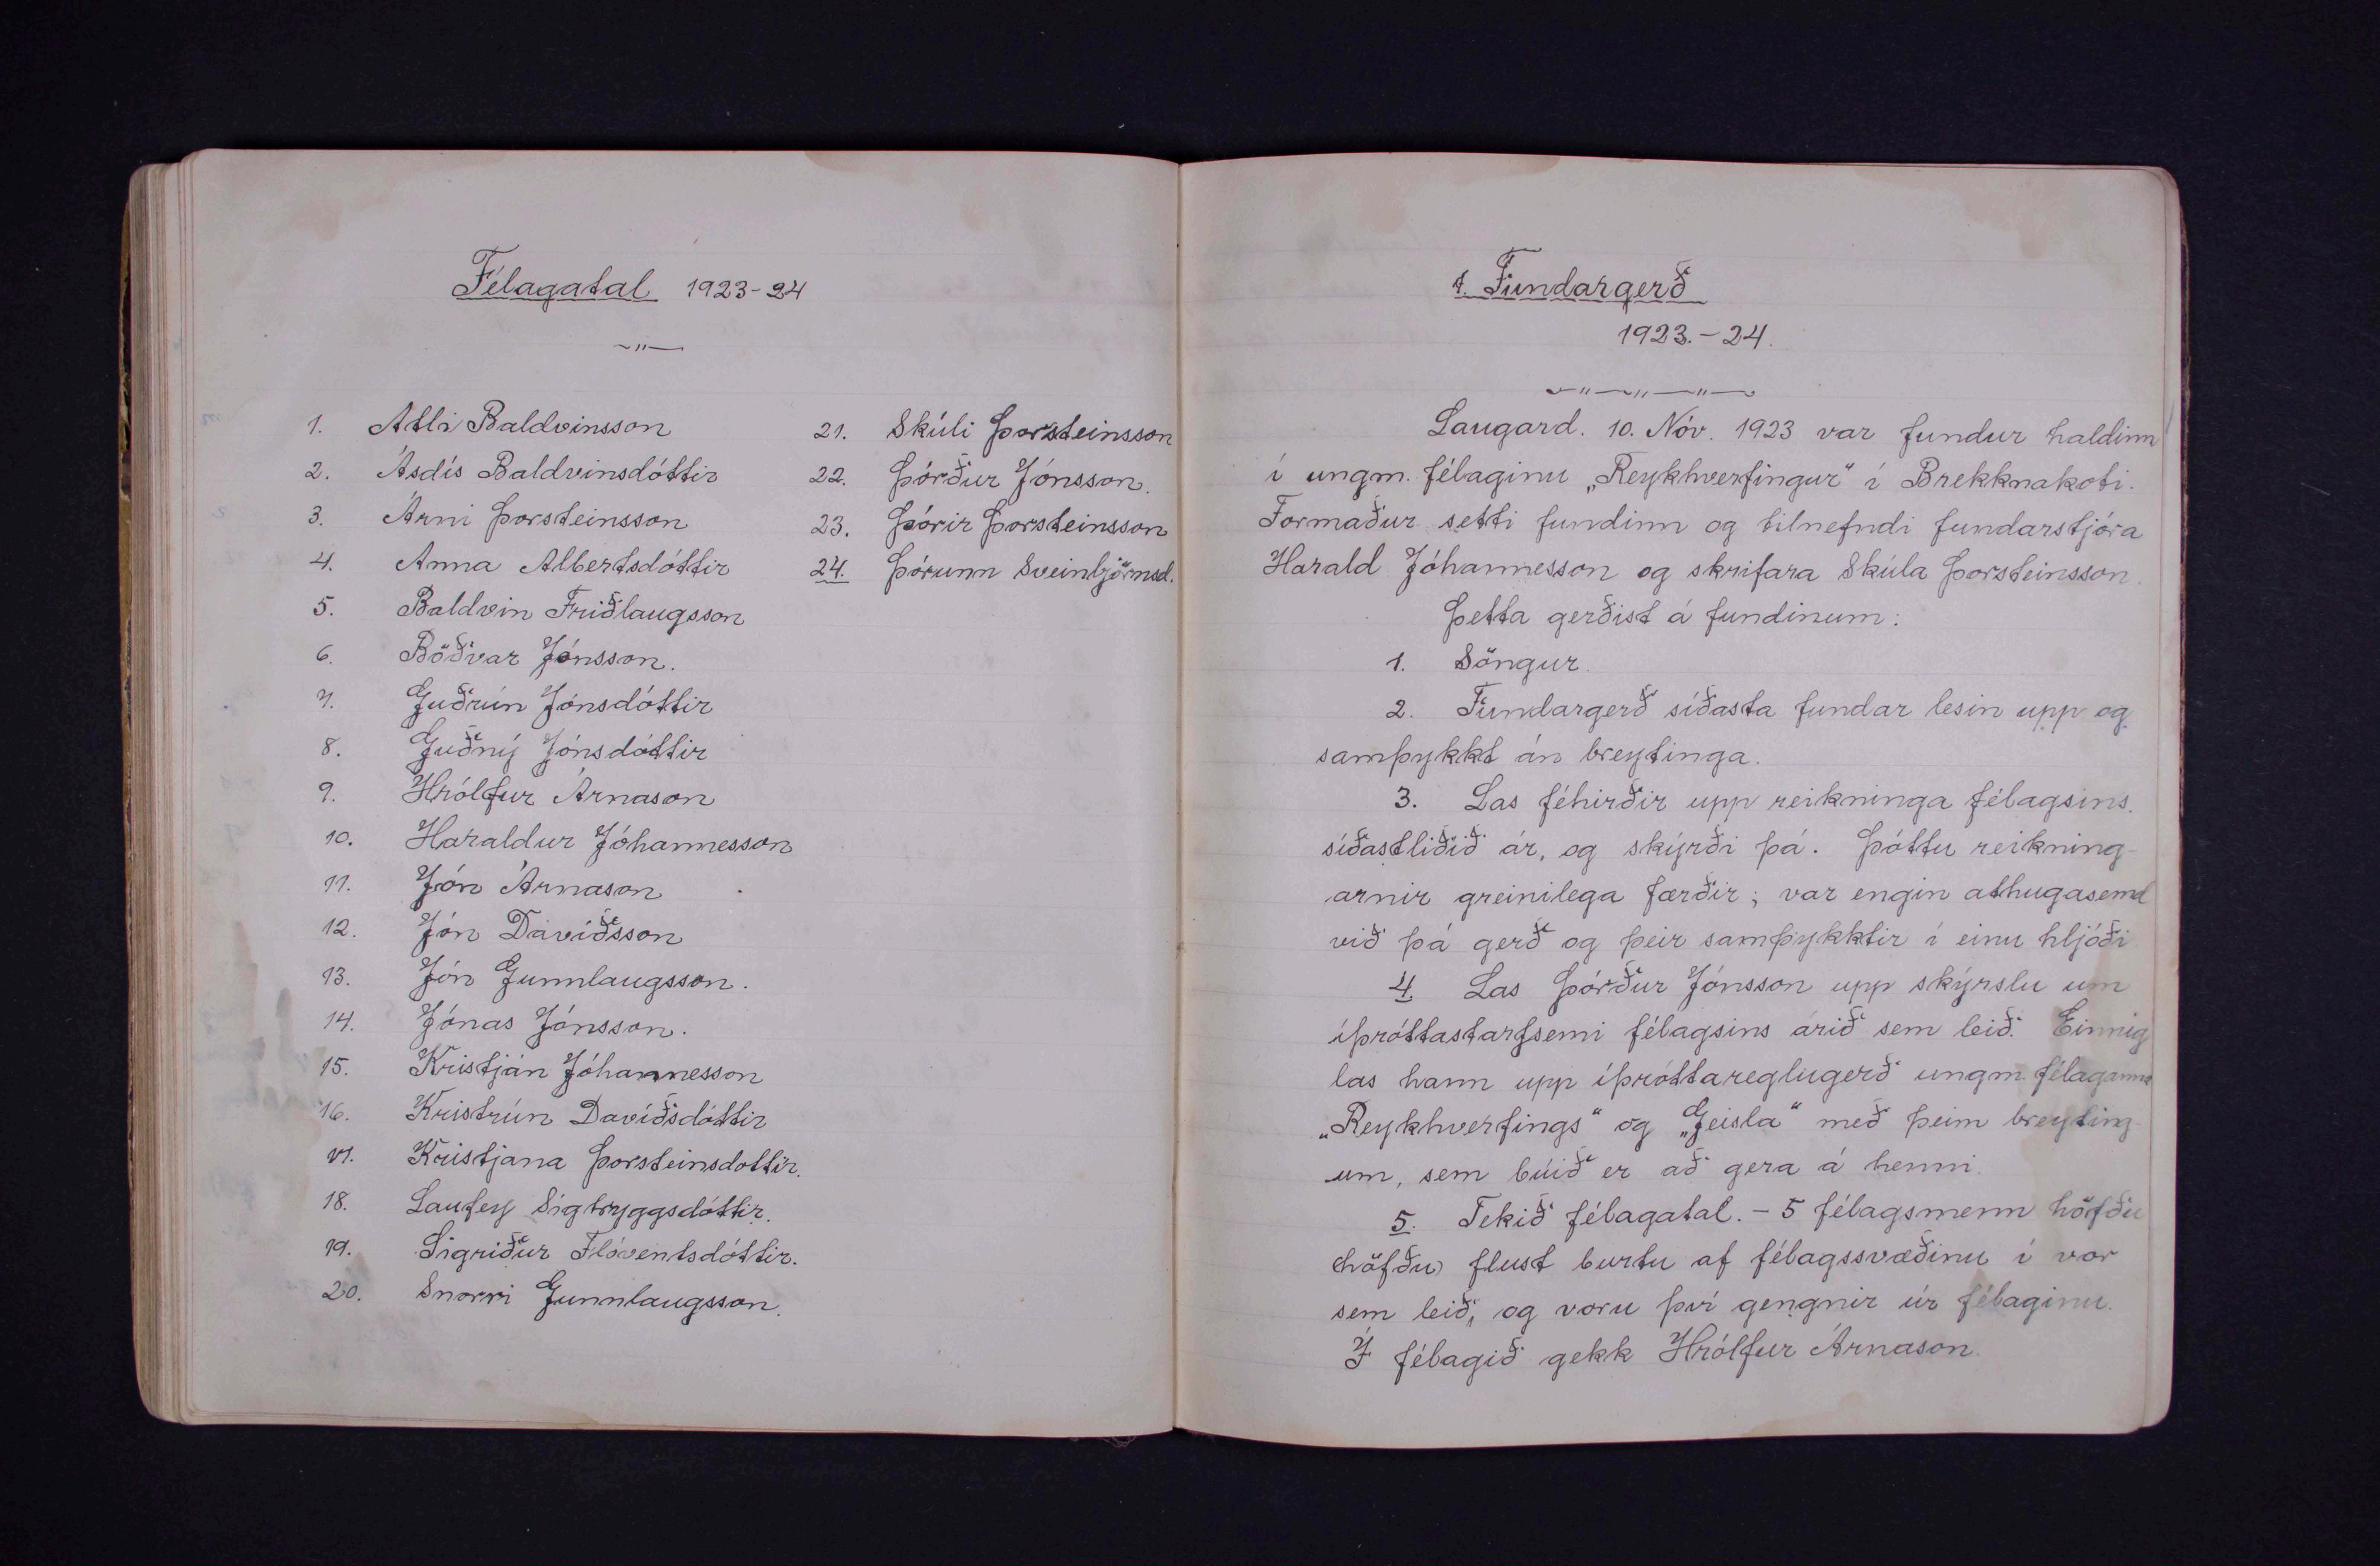 Félagatal 1923-24
~"—
1. Atli Baldvinsson
2. Ásdís Baldvinsdóttir
3. Árni Þorsteinsson
4. Anna Albertsdóttir
5. Baldvin Friðlaugsson
6. Böðvar Jónsson.
7. Guðrún Jónsdóttir
8. Guðný Jónsdóttir
9. Hrólfur Árnason
10. Haraldur Jóhannesson
11. Jón Árnason
12. Jón Davíðsson
13. Jón Gunnlaugsson.
14. Jónas Jónsson.
15. Kristján Jóhannesson
16. Kristrún Davíðsdóttir
17. Kristjana Þorsteinsdottir.
18. Laufey Sigtryggsdóttir.
19. Sigriður Flóventsdóttir.
20. Snorri Gunnlaugsson.
21. Skúli Þorsteinsson
22. Þórður Jónsson.
23. Þórir Þorsteinsson
24. Þórunn Sveinbjörnsd.
1. Fundargerð
1923.-24.
~"—~"—"—
Laugard. 10. Nóv. 1923 var fundur haldinn
í ungm. félaginu „Reykhverfingur“ í Brekknakoti.
Formaður setti fundinn og tilnefndi fundarstjóra
Harald Jóhannesson og skrifara Skúla Þorsteinsson.
Þetta gerðist á fundinum:
1. Söngur.
2. Fundargerð síðasta fundar lesin upp og
samþykkt án breytinga.
3. Las féhirðir upp reikninga félagsins.
síðastliðið ár, og skýrði þá. Þóttu reikning-
arnir greinilega færðir; var engin athugasemd
við þá gerð og þeir samþykktir í einu hljóði
4. Las Þórður Jónsson upp skýrslu um
íþróttastarfsemi félagsins árið sem leið. Einnig
las hann upp íþróttareglugerð ungm. félaganna
„Reykhverfings“ og „Geisla“ með þeim breyting-
um, sem búið er að gera á henni.
5. Tekið félagatal. - 5 félagsmenn höfðu
(höfðu) flust burtu af félagssvæðinu í vor
sem leið, og voru því gengnir úr félaginu.
Í félagið gekk Hrólfur Árnason.